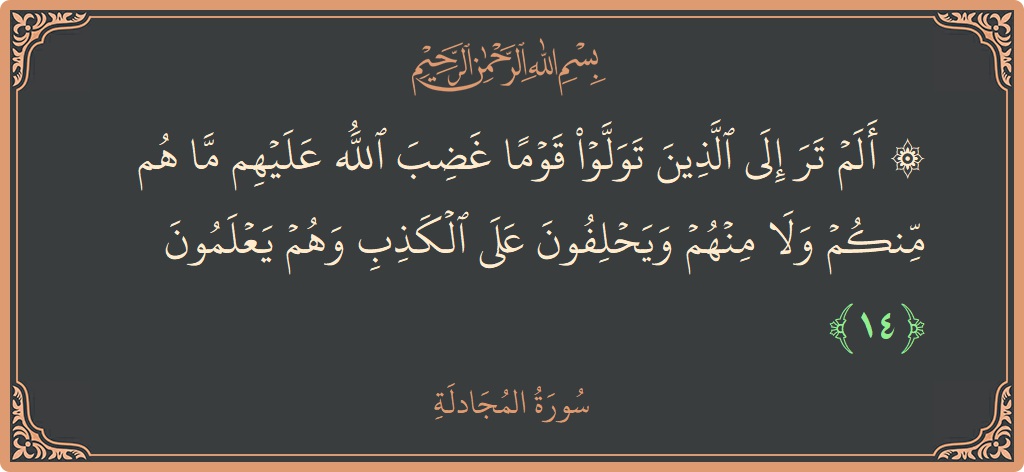 بِسْمِ اللَّهِ الرَّحْمَٰنِ الرَّحِيمِ
۞ أَلَمْ تَرَ إِلَى ٱلَّذِينَ تَوَلَّوْا۟ قَوْمًا غَضِبَ ٱللَّهُ عَلَيْهِم مَّا هُم
مِّنكُمْ وَلَا مِنْهُمْ وَيَحْلِفُونَ عَلَى ٱلْكَذِبِ وَهُمْ يَعْلَمُونَ
﴿١٤﴾
سُورَةُ المُجَادلَةِ